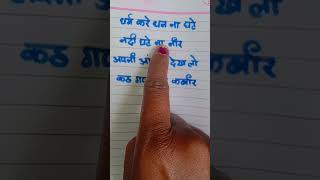 धर्म करे धन ना घटे
नदी घटे ना नीर
अपनी आ देख लो
कह गए कबीर